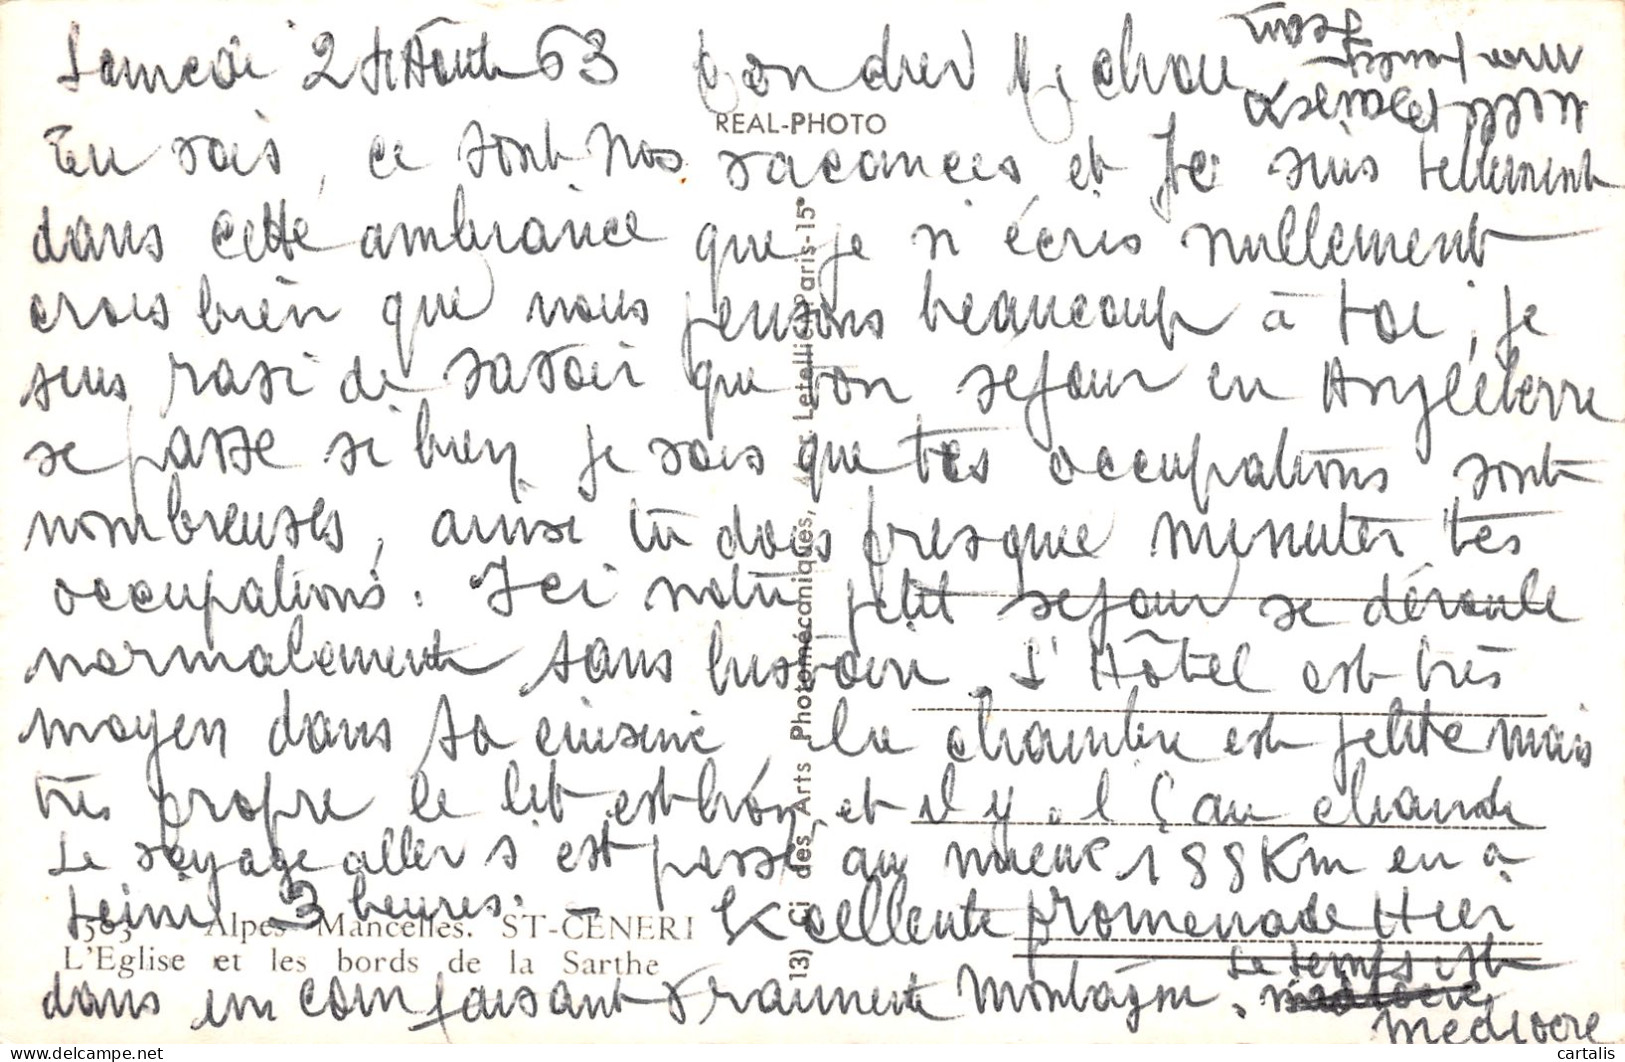 Samedi 24 Août 63 Mon cher Michou
REAL-PHOTO
Tu vois, ce sont nos vacances et je suis tellement
dans cette ambiance que je n'écris nullement
crois bien que nous pensons beaucoup à toi, je
suis ravi de savoir que ton séjour en Angleterre
se passe si bien je vois que tes occupations sont
nombreuses, ainsi tu dois presque minuter tes
occupations. Ici notre petit séjour se déroule
normalement sans histoire. L'Hôtel est très
moyen dans sa cuisine, la chambre est petite mais
très propre le lit est bon, et il y a l'eau chaude
Le voyage aller s'est passé au mieux 188 Km en à
peine 3 heures. - Excellente promenade Hier
dans un car faisant vraiment montagne. Le temps est
médiocre
mille baisers
Jean
Alpes Mancelles. ST-CÉNERI
L'Eglise et les bords de la Sarthe
(13) Ci des Arts Photomécaniques, Letellier, Paris-15e
cartalis